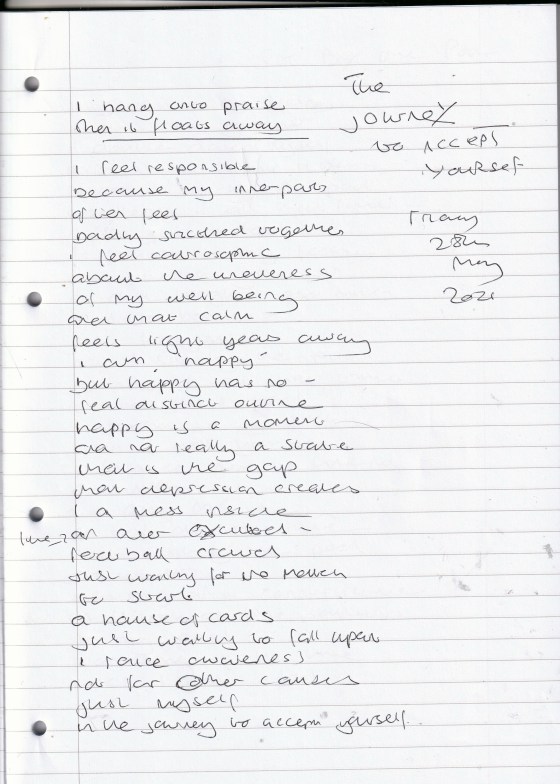 The
Journey
to Accept
Yourself
Friday
28th
May
2021
I hang onto praise
then it floats away
I feel responsible
because my inner parts
often feel
badly stitched together
I feel catastrophic
about the unevenness
of my well being
and that calm
feels light years away
I am "happy"
but happy has no -
real distinct outline
happy is a moment
and not really a state
that is the gap
that depression creates
I a mess inside
like an over excited -
football crowd
just waiting for the match
to start
a house of cards
just waiting to fall upon
I raise awareness
not for other causes
just myself
in the journey to accept yourself.